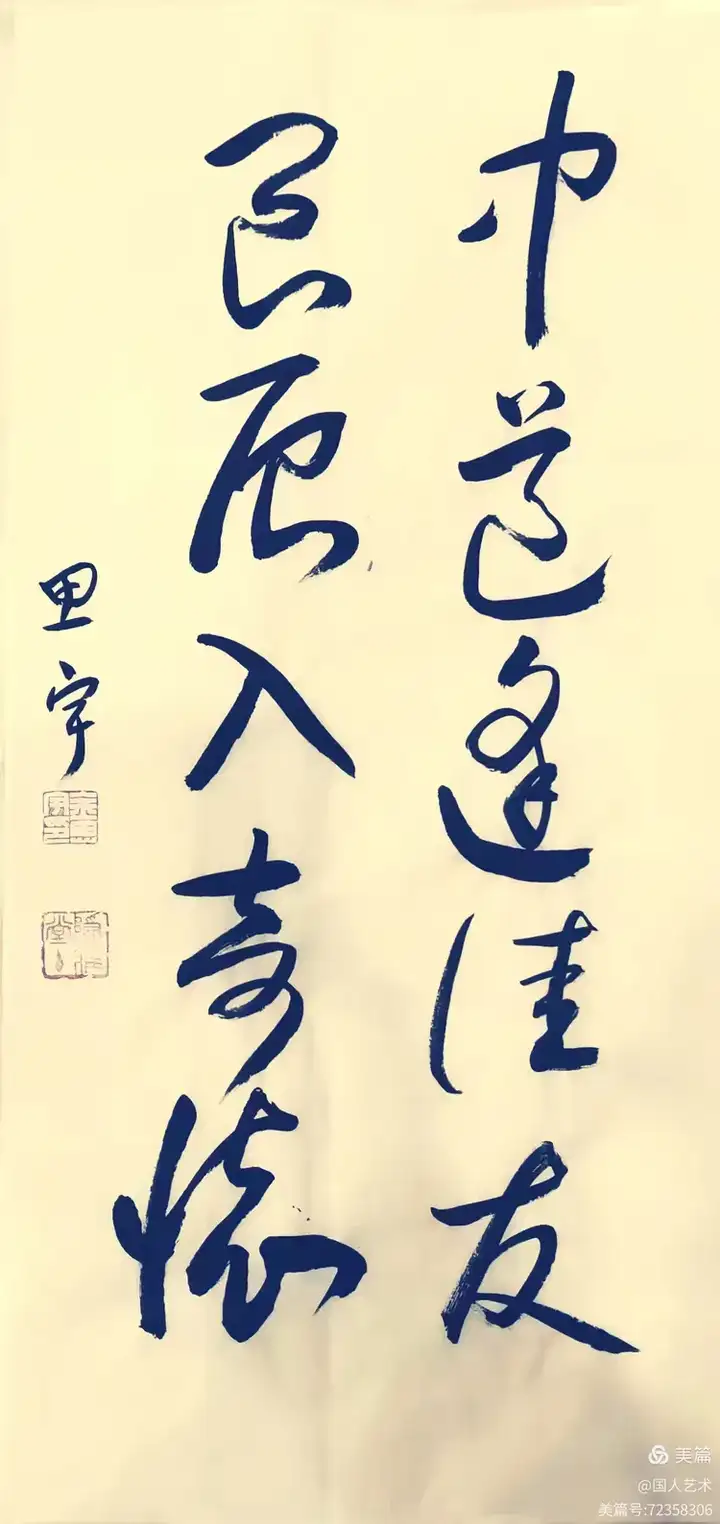 中道逢佳友
良辰入奇怀
思宇
美篇
@国人艺术
美篇号:72358306